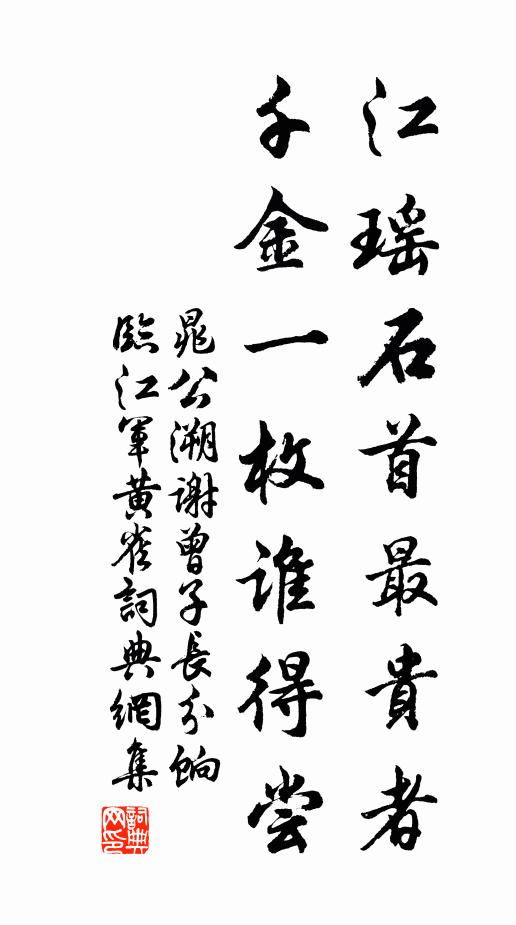 江瑶石首最貴者
千金一枚谁得尝
晁公溯謝曾子長分餉
臨江軍黄雀詞典網集
詞典网印